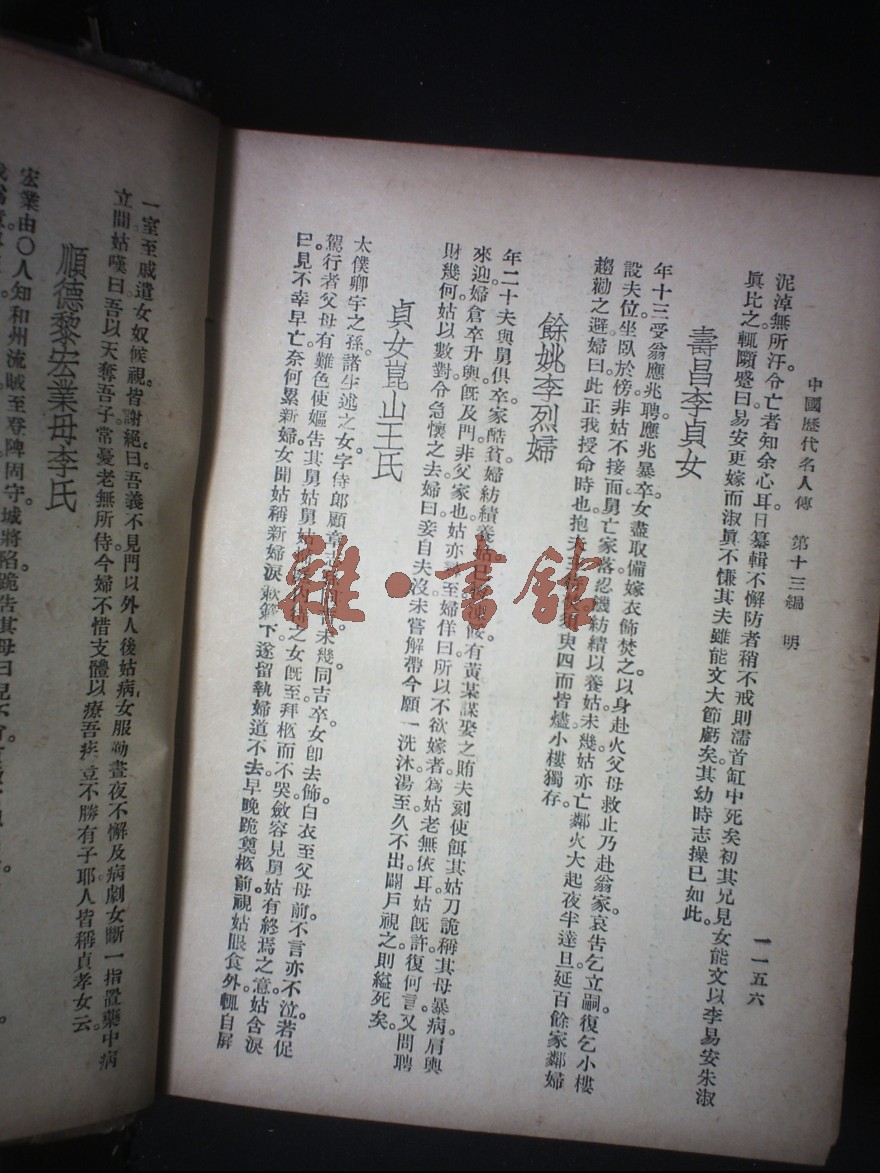 中國歷代名人傳　第十三編　明
一一五六
泥淖無所汙。今亡者知余心耳。日纂輯不懈。防者稍不戒。則濡首缸中死矣。初其兄見女能文。以李易安朱淑
眞比之。輒顰蹙曰。易安更嫁。而淑眞不慊其夫。雖能文。大節虧矣。其幼時志操已如此。
壽昌李貞女
年十三。受翁應兆聘。應兆暴卒。女盡取備嫁衣飾焚之。以身赴火。父母救止。乃赴翁家哀告乞立嗣。復乞小樓
設夫位。坐臥於傍。非姑不接面。舅亡家落。忍饑紡績以養姑。未幾姑亦亡。鄰火大起。夜半達旦。延百餘家。鄰婦
趨勸之避。婦曰。此正我授命時也。抱夫 四面皆燼。小樓獨存。
餘姚李烈婦
年二十。夫與舅俱卒。家酷貧。婦紡績養姑。 有黃某謀娶之。賄夫 刻使餌其姑。 詭稱其母暴病。肩輿
來迎。婦倉卒升輿。旣及門。非父家也。姑亦 至。婦佯曰。所以不欲嫁者。爲姑老無依耳。姑旣許。復何言。又問聘
財幾何。姑以數對。令急懷之去。婦曰。妾自夫沒。未嘗解帶。今願一洗沐。 湯至久不出。闢戶視之。則縊死矣。
貞女崑山王氏
太僕卿宇之孫。諸生述之女。字侍郎顧章志 未幾同吉卒。女卽去飾。白衣至父母前。不言亦不泣。若促
駕行者。父母有難色。使嫗告其舅姑。舅姑 之。女旣至。拜柩而不哭。斂容見舅姑。有終焉之意。姑含淚
曰。兒不幸早亡。奈何累新婦。女聞姑稱新婦。淚簌簌下。遂留執婦道不去。早晚跪奠柩前。視姑眼食外。輒自屏
一室。至戚遣女奴候視。皆謝絕曰。吾義不見門以外人。後姑病。女服勤。晝夜不懈。及病劇。女斷一指置藥中。病
立間。姑嘆曰。吾以天奪吾子。常憂老無所侍。今婦不惜支體以療吾疾。豈不勝有子耶。人皆稱貞孝女云。
順德黎宏業母李氏
宏業由〇人知和州。流賊至。登陴固守。城將陷。跪告其母曰。